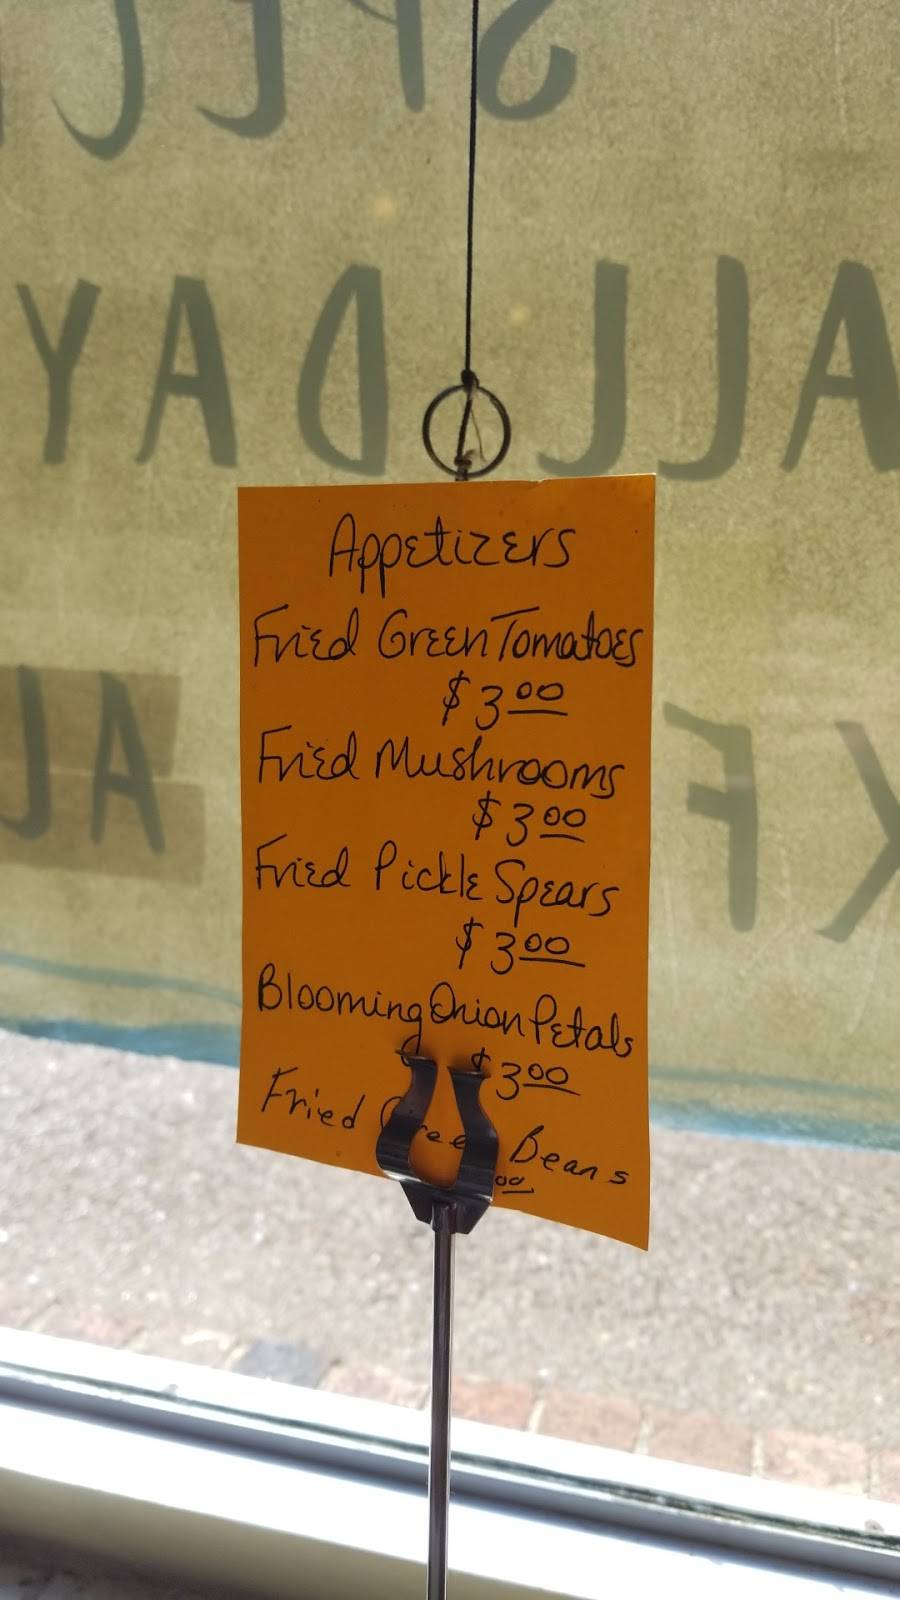 SPEC
ALL DAY
Appetizers
Fried Green Tomatoes
$3.00
Fried Mushrooms
$3.00
Fried Pickle Spears
$3.00
Blooming Onion Petals
$3.00
Fried Green Beans